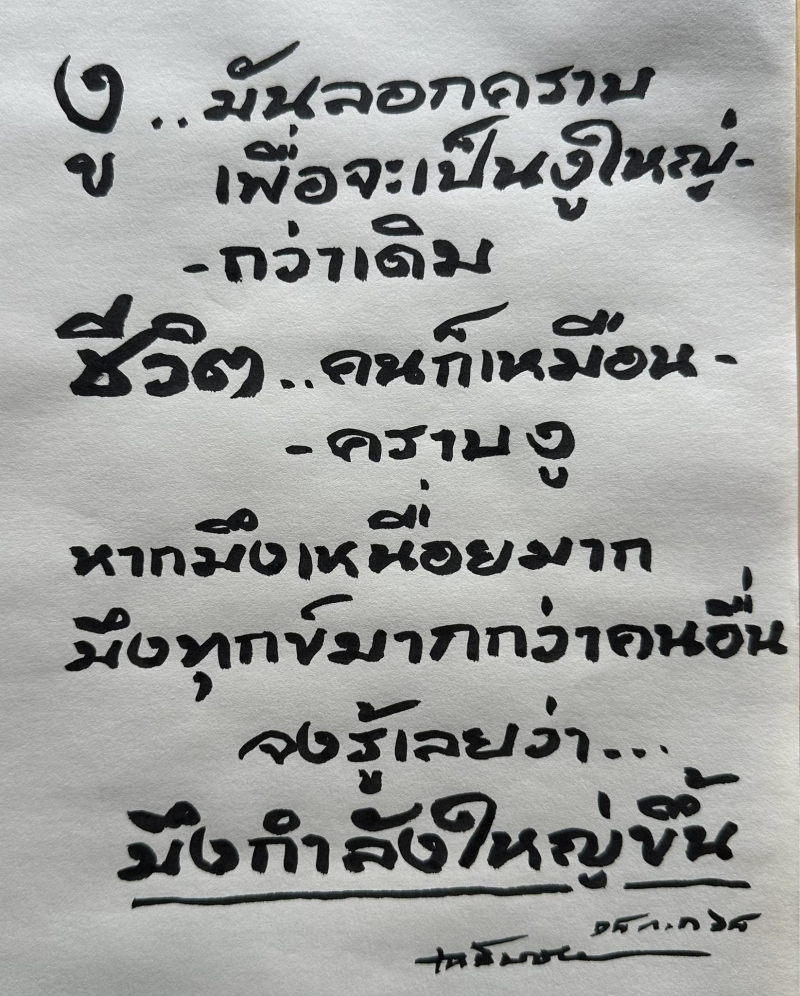 งู..มันลอกคราบ
เพื่อจะเป็นงูใหญ่-
-กว่าเดิม
ชีวิต..คนก็เหมือน-
-คราบงู
หากมึงเหนื่อยมาก
มึงทุกข์มากกว่าคนอื่น
จงรู้เลยว่า...
มึงกำลังใหญ่ขึ้น